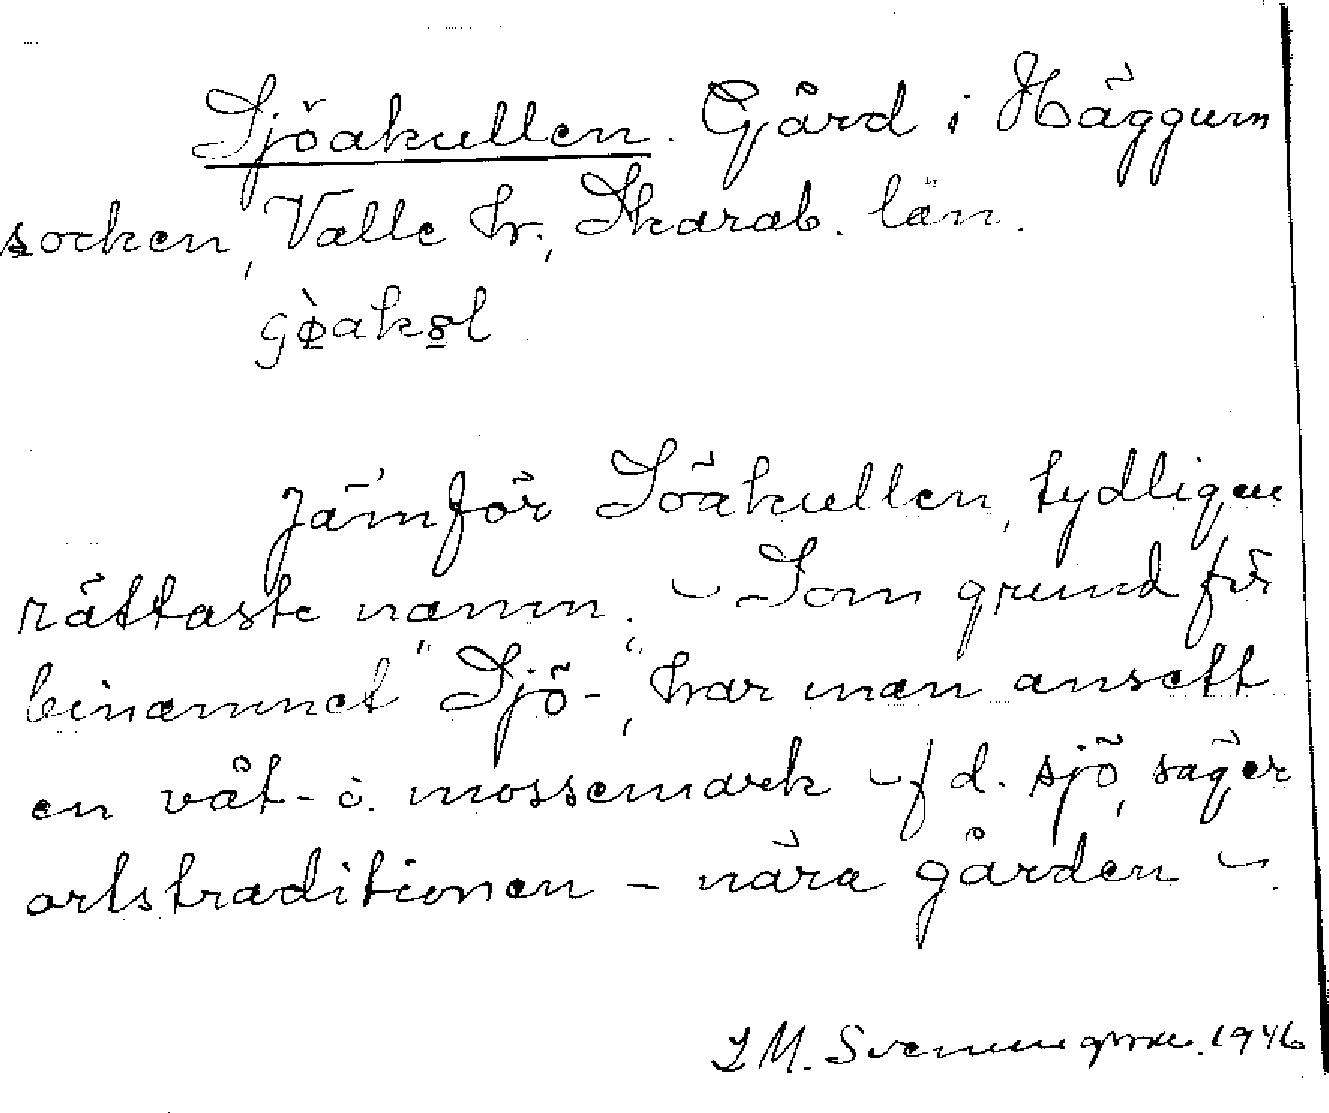 Sjöakullen. Gård i Häggum
socken, Valle hr., Skarab. län.
Jämför Söäkullen, tydligen
rättaste namn. – Som grund för
binamnet "Sjö-", har man ansett
en våt- o. mossemark – f d. sjö, säger
ortstraditionen – nära gården –.
1946